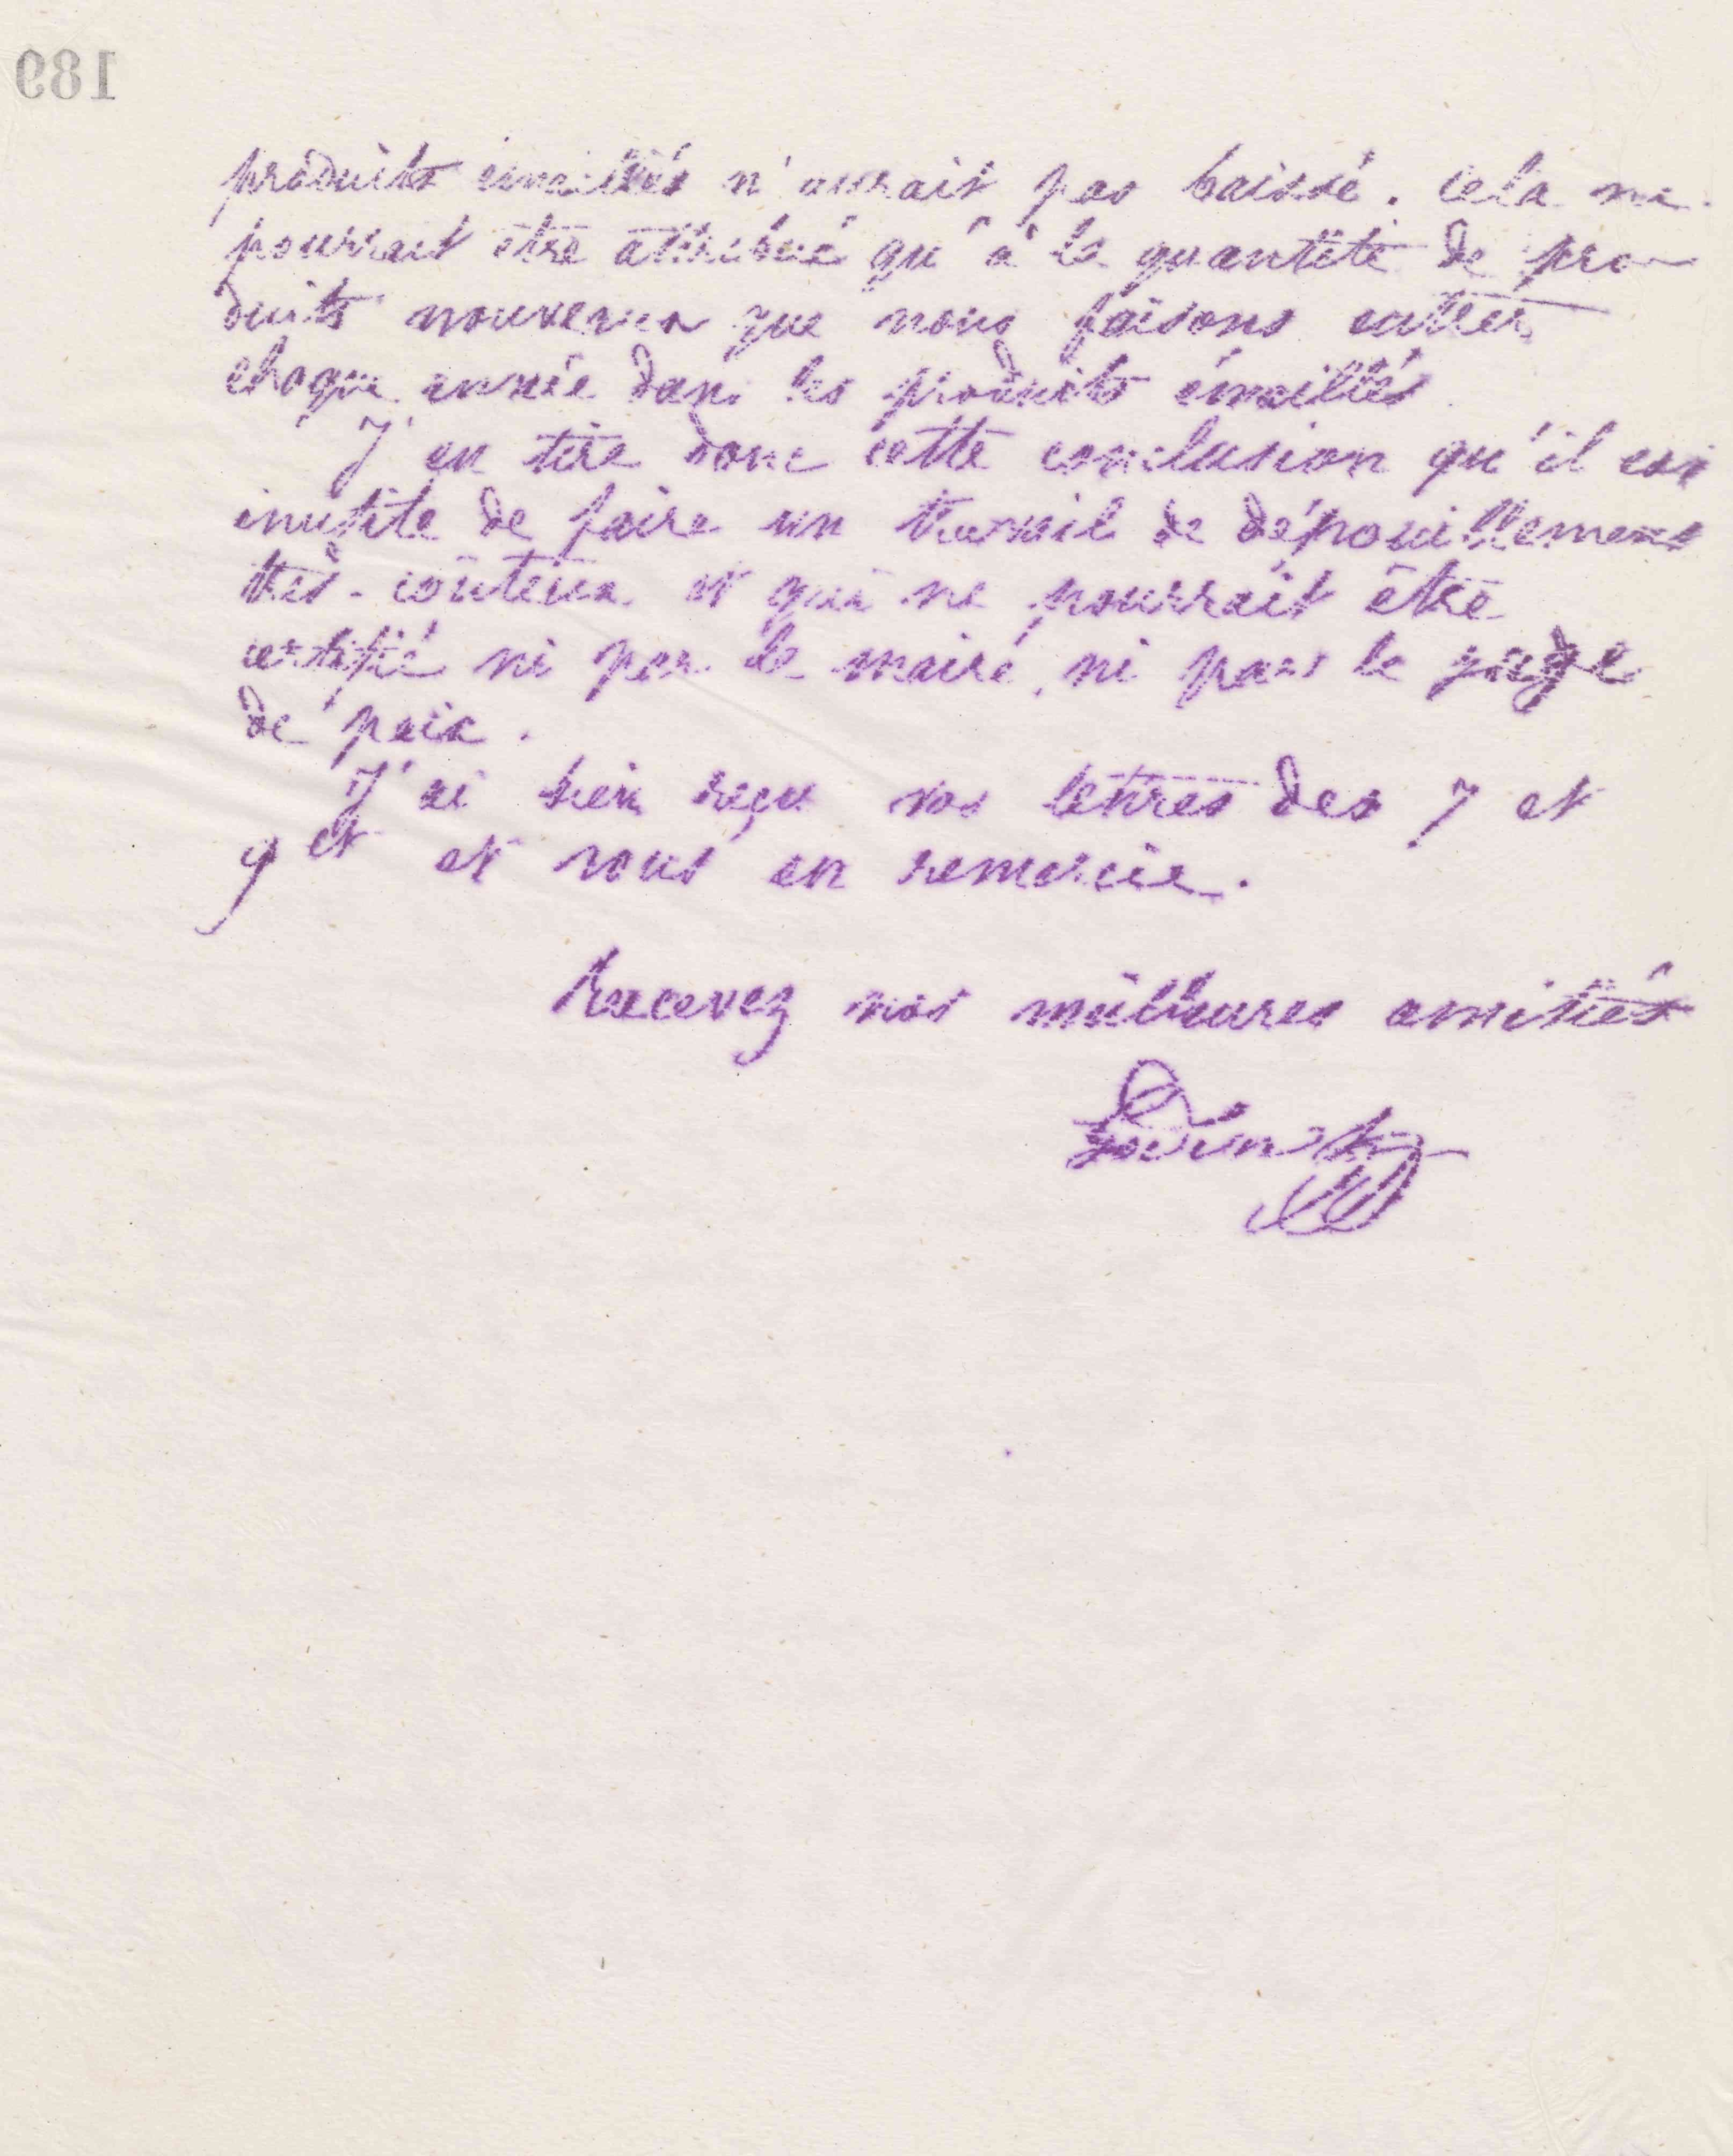 189
produits émaillés n'aurait pas baissé. Cela ne
pourrait être attribué qu'à la quantité de pro-
duits nouveaux que nous faisons entrer
chaque année dans les produits émaillés
J'en tire donc cette conclusion qu'il est
inutile de faire un travail de dépouillement
très-coûteux et qui ne pourrait être
certifié ni par le maire, ni par le juge
de paix.
J'ai bien reçu vos lettres des 7 et
9 ct et vous en remercie.
Recevez mes meilleures amitiés
Godin